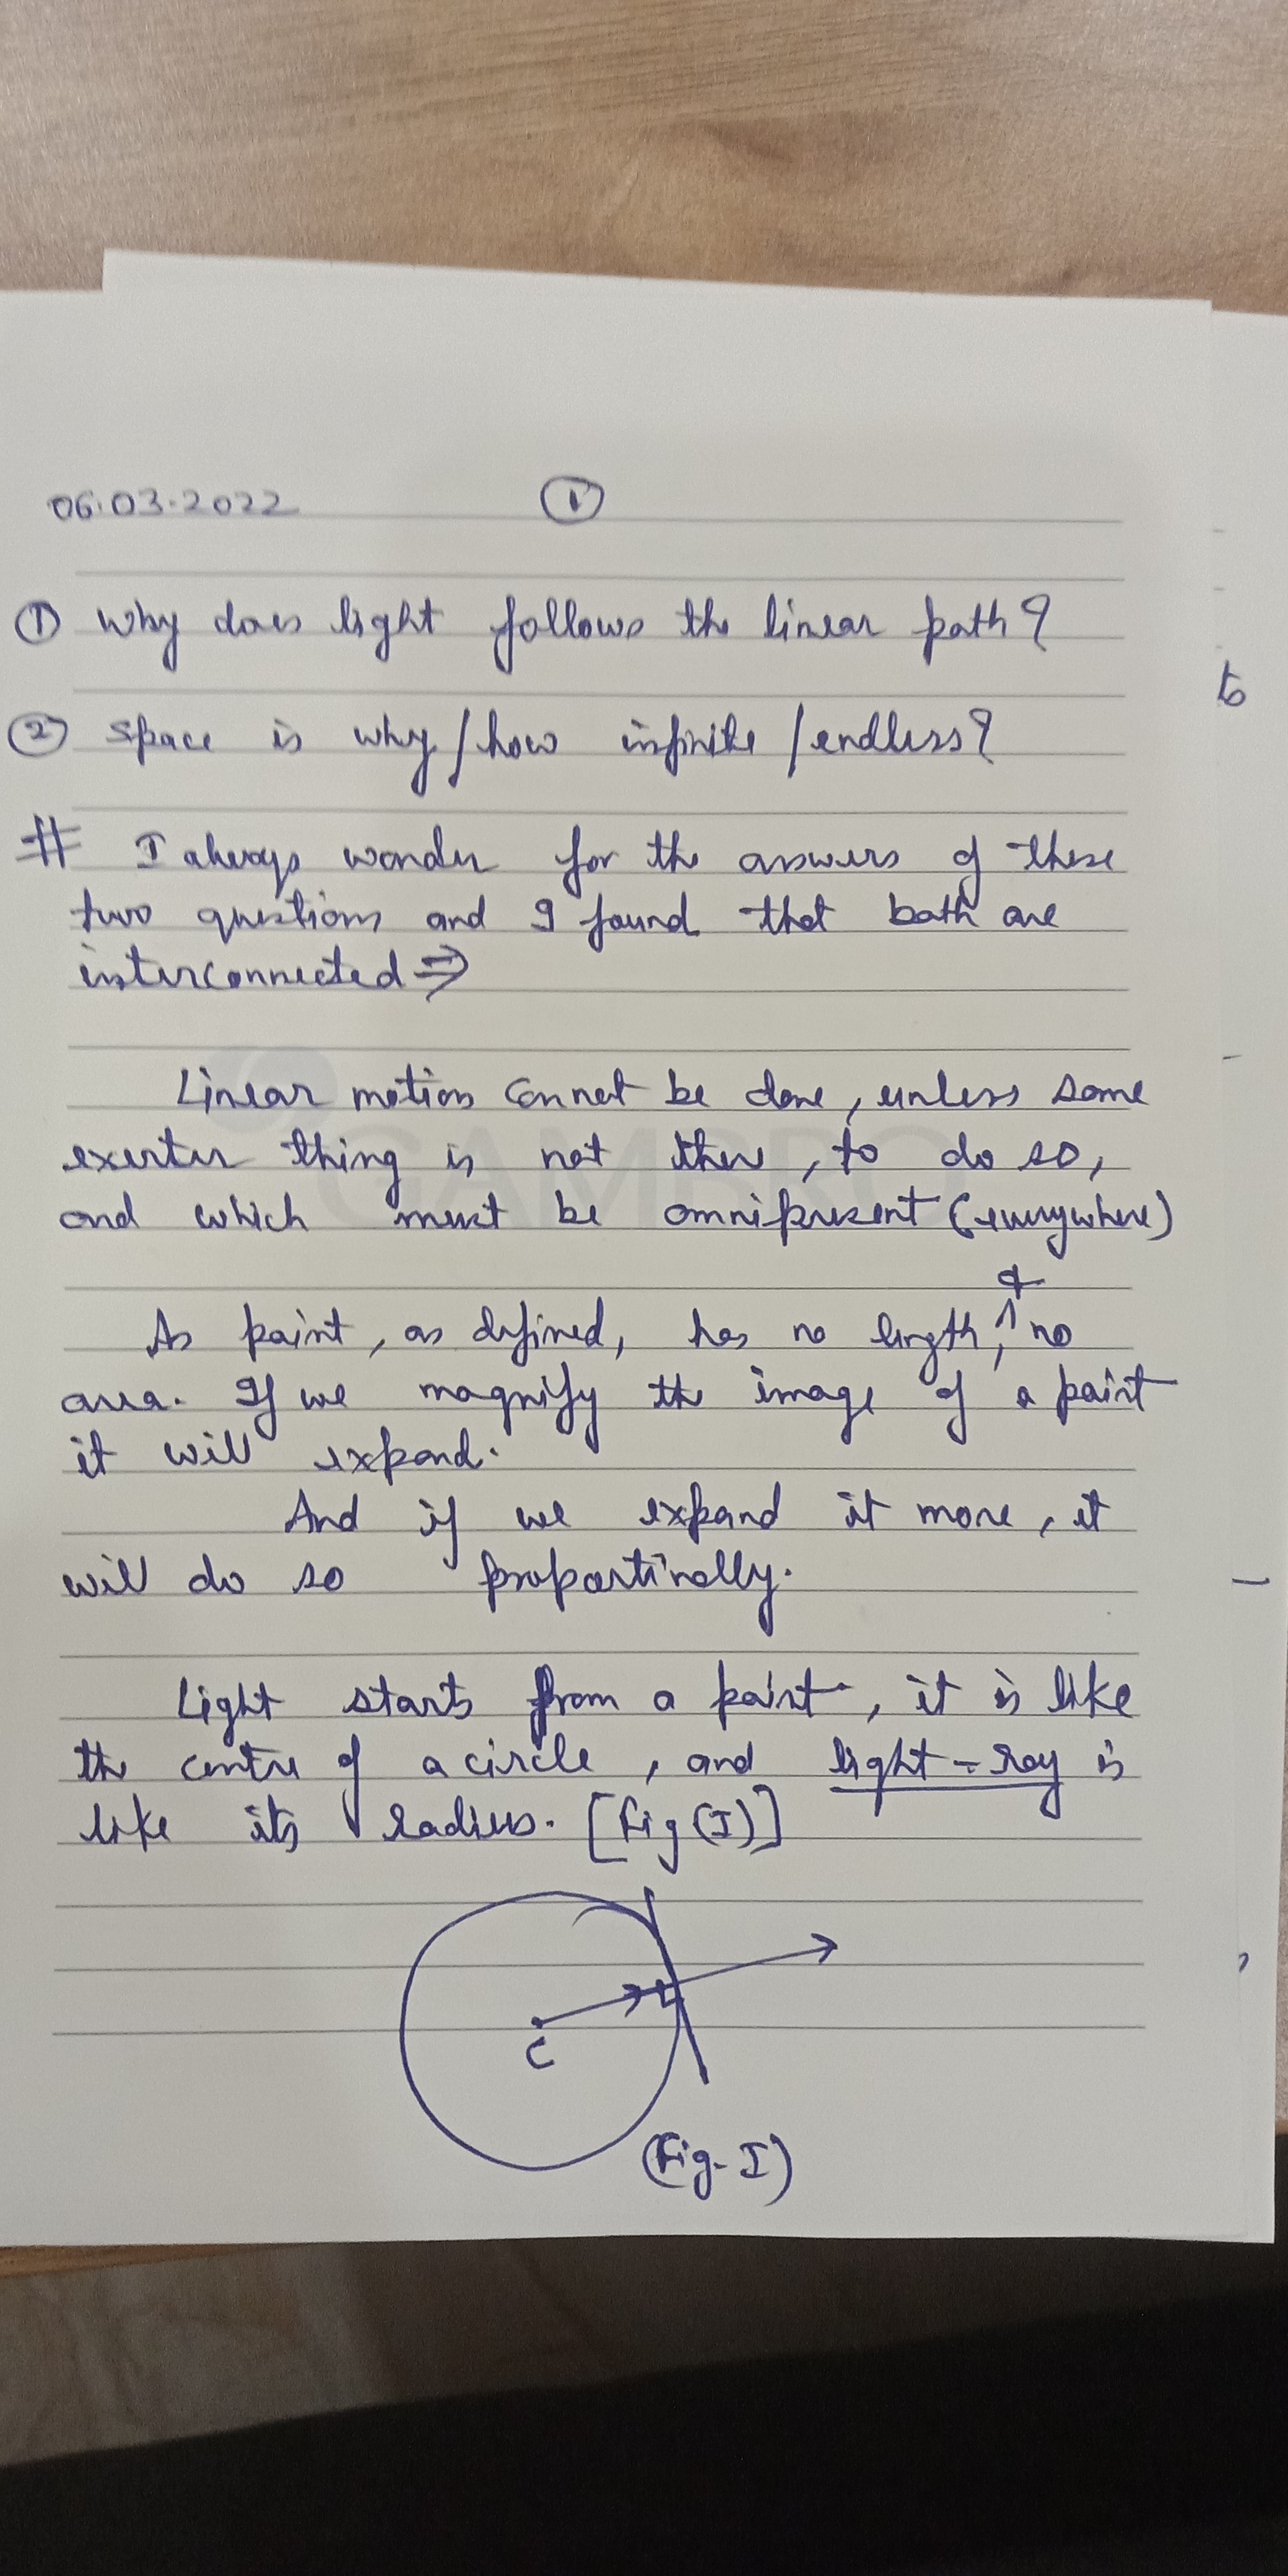 06.03.2022
①
① Why does light follows the linear path?
② Space is why/how infinite/endless?
# I always wonder for the answers of these
two questions and I found that both are
interconnected ⇒
GAMBRO
Linear motion cannot be done, unless some
exerter thing is not there, to do so,
and which must be omnipresent (everywhere)
As point, as defined, has no length, & no
area. If we magnify the image of a point
it will expand.
And if we expand it more, it
will do so proportinally.
Light starts from a point, it is like
the centre of a circle, and light-ray is
like its radius. [Fig (I)]
C
(Fig-I)
to